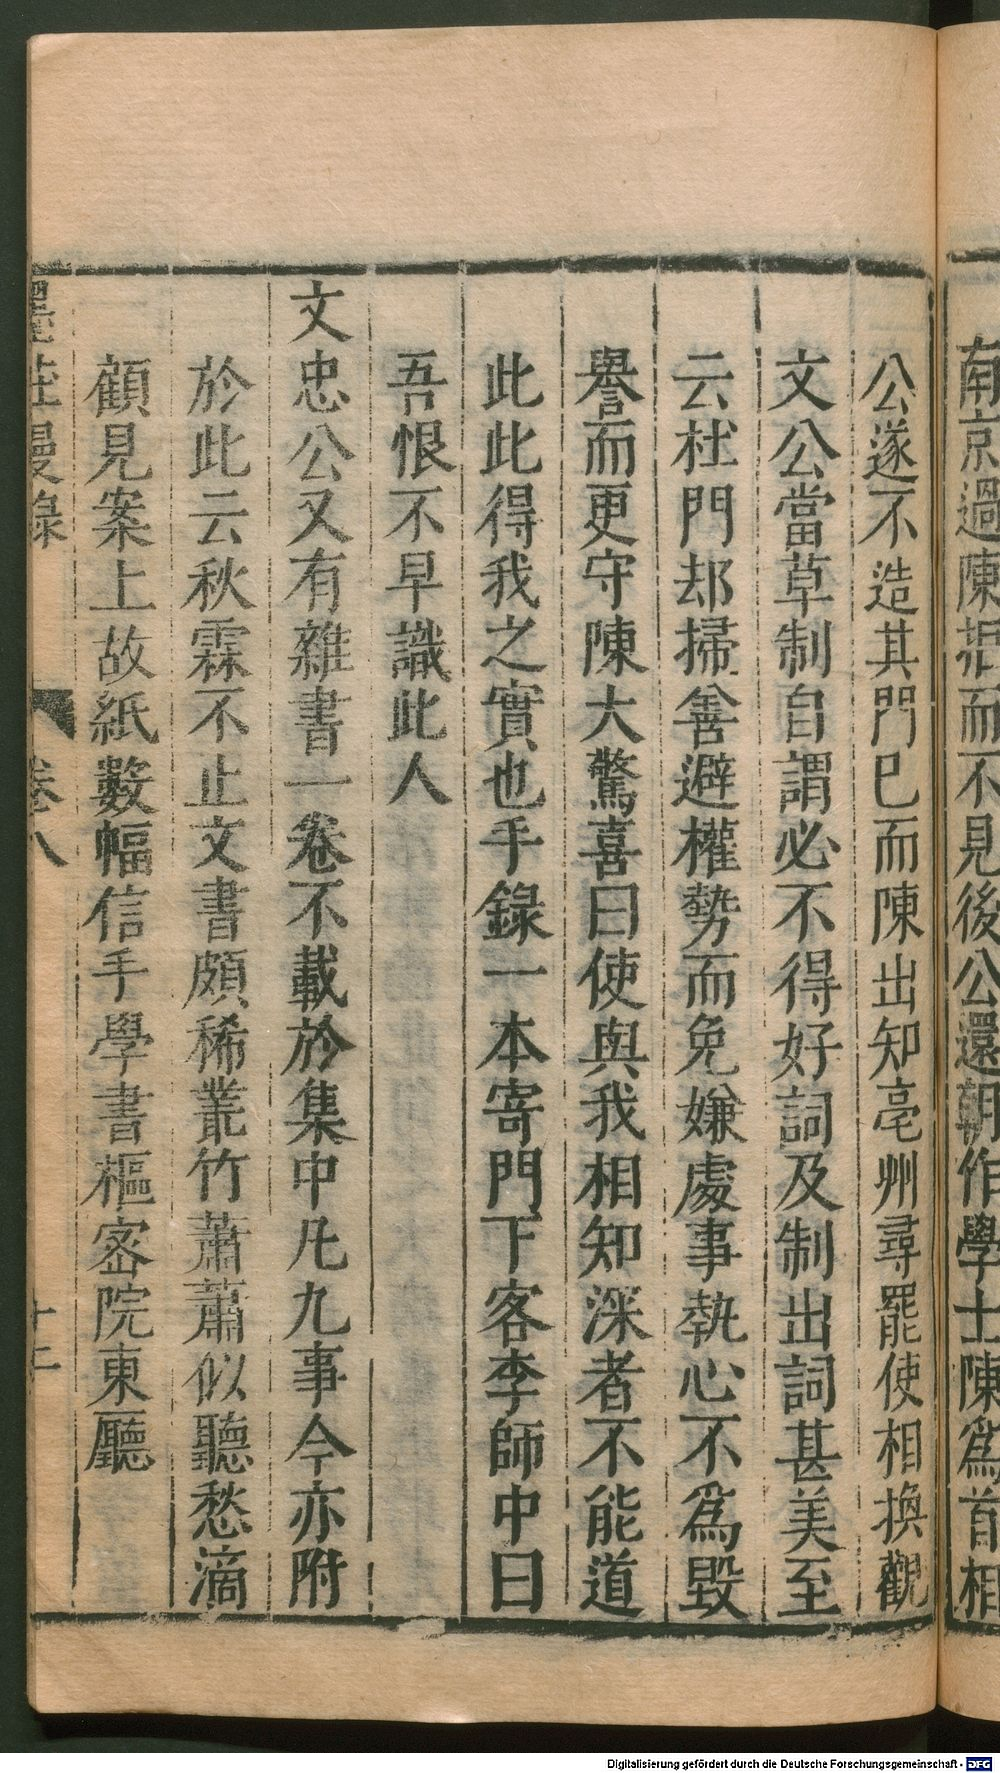 南京過陳拒而不見後公還朝作學士陳爲首相
公遂不造其門已而陳出知亳州尋罷使相換觀
文公當草制自謂必不得好詞及制出詞甚美至
云杜門却掃善避權勢而免嫌處事執心不爲毀
譽而更守陳大驚喜曰使與我相知深者不能道
此此得我之實也手錄一本寄門下客李師中曰
吾恨不早識此人
文忠公又有雜書一卷不載於集中凡九事今亦附
於此云秋霖不止文書頗稀叢竹蕭蕭似聽愁滴
顧見案上故紙數幅信手學書樞密院東廳
墨莊漫錄 卷八 十二
Digitalisierung gefördert durch die Deutsche Forschungsgemeinschaft - DFG